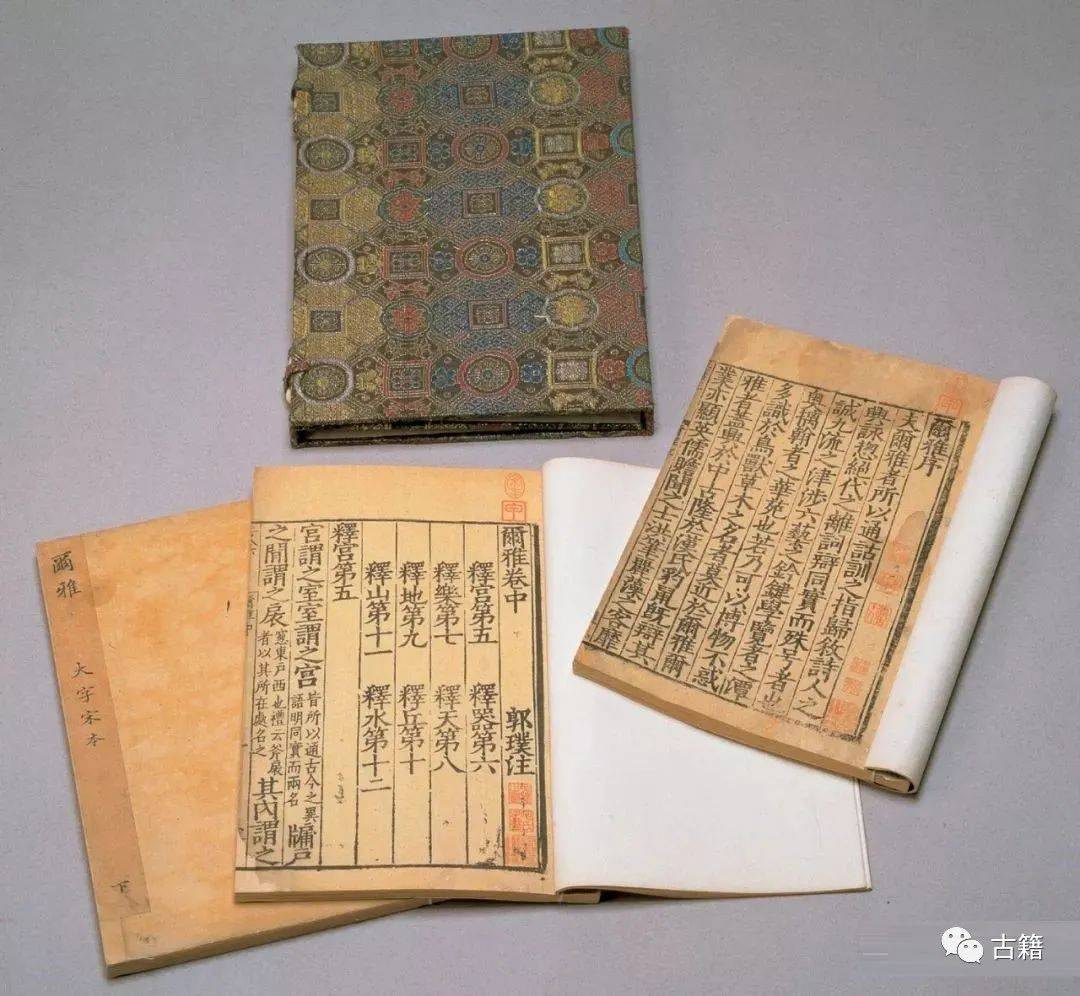 爾雅序
夫爾雅者所以通詁訓之指歸敘詩人之
興詠揔絕代之離詞辯同實而殊号者也
誠九流之津涉六藝之鈐鍵學覽者之潭
奧摛翰者之華苑也若乃可以博物不惑
多識於鳥獸草木之名者莫近於爾雅爾
雅者蓋興於中古隆於漢氏豹鼠既辯其
業亦顯英儒贍聞之士洪筆麗藻之客靡
爾雅卷中 郭璞注
釋宮第五 釋器第六
釋樂第七 釋天第八
釋地第九 釋丘第十
釋山第十一 釋水第十二
釋宮第五
宮謂之室室謂之宮 皆所以通古今之異語明同實而兩名 牖戶
之間謂之扆 窻東戶西也禮云斧扆者以其所在處名之 其內謂之
爾雅 大字宋本 下
古籍